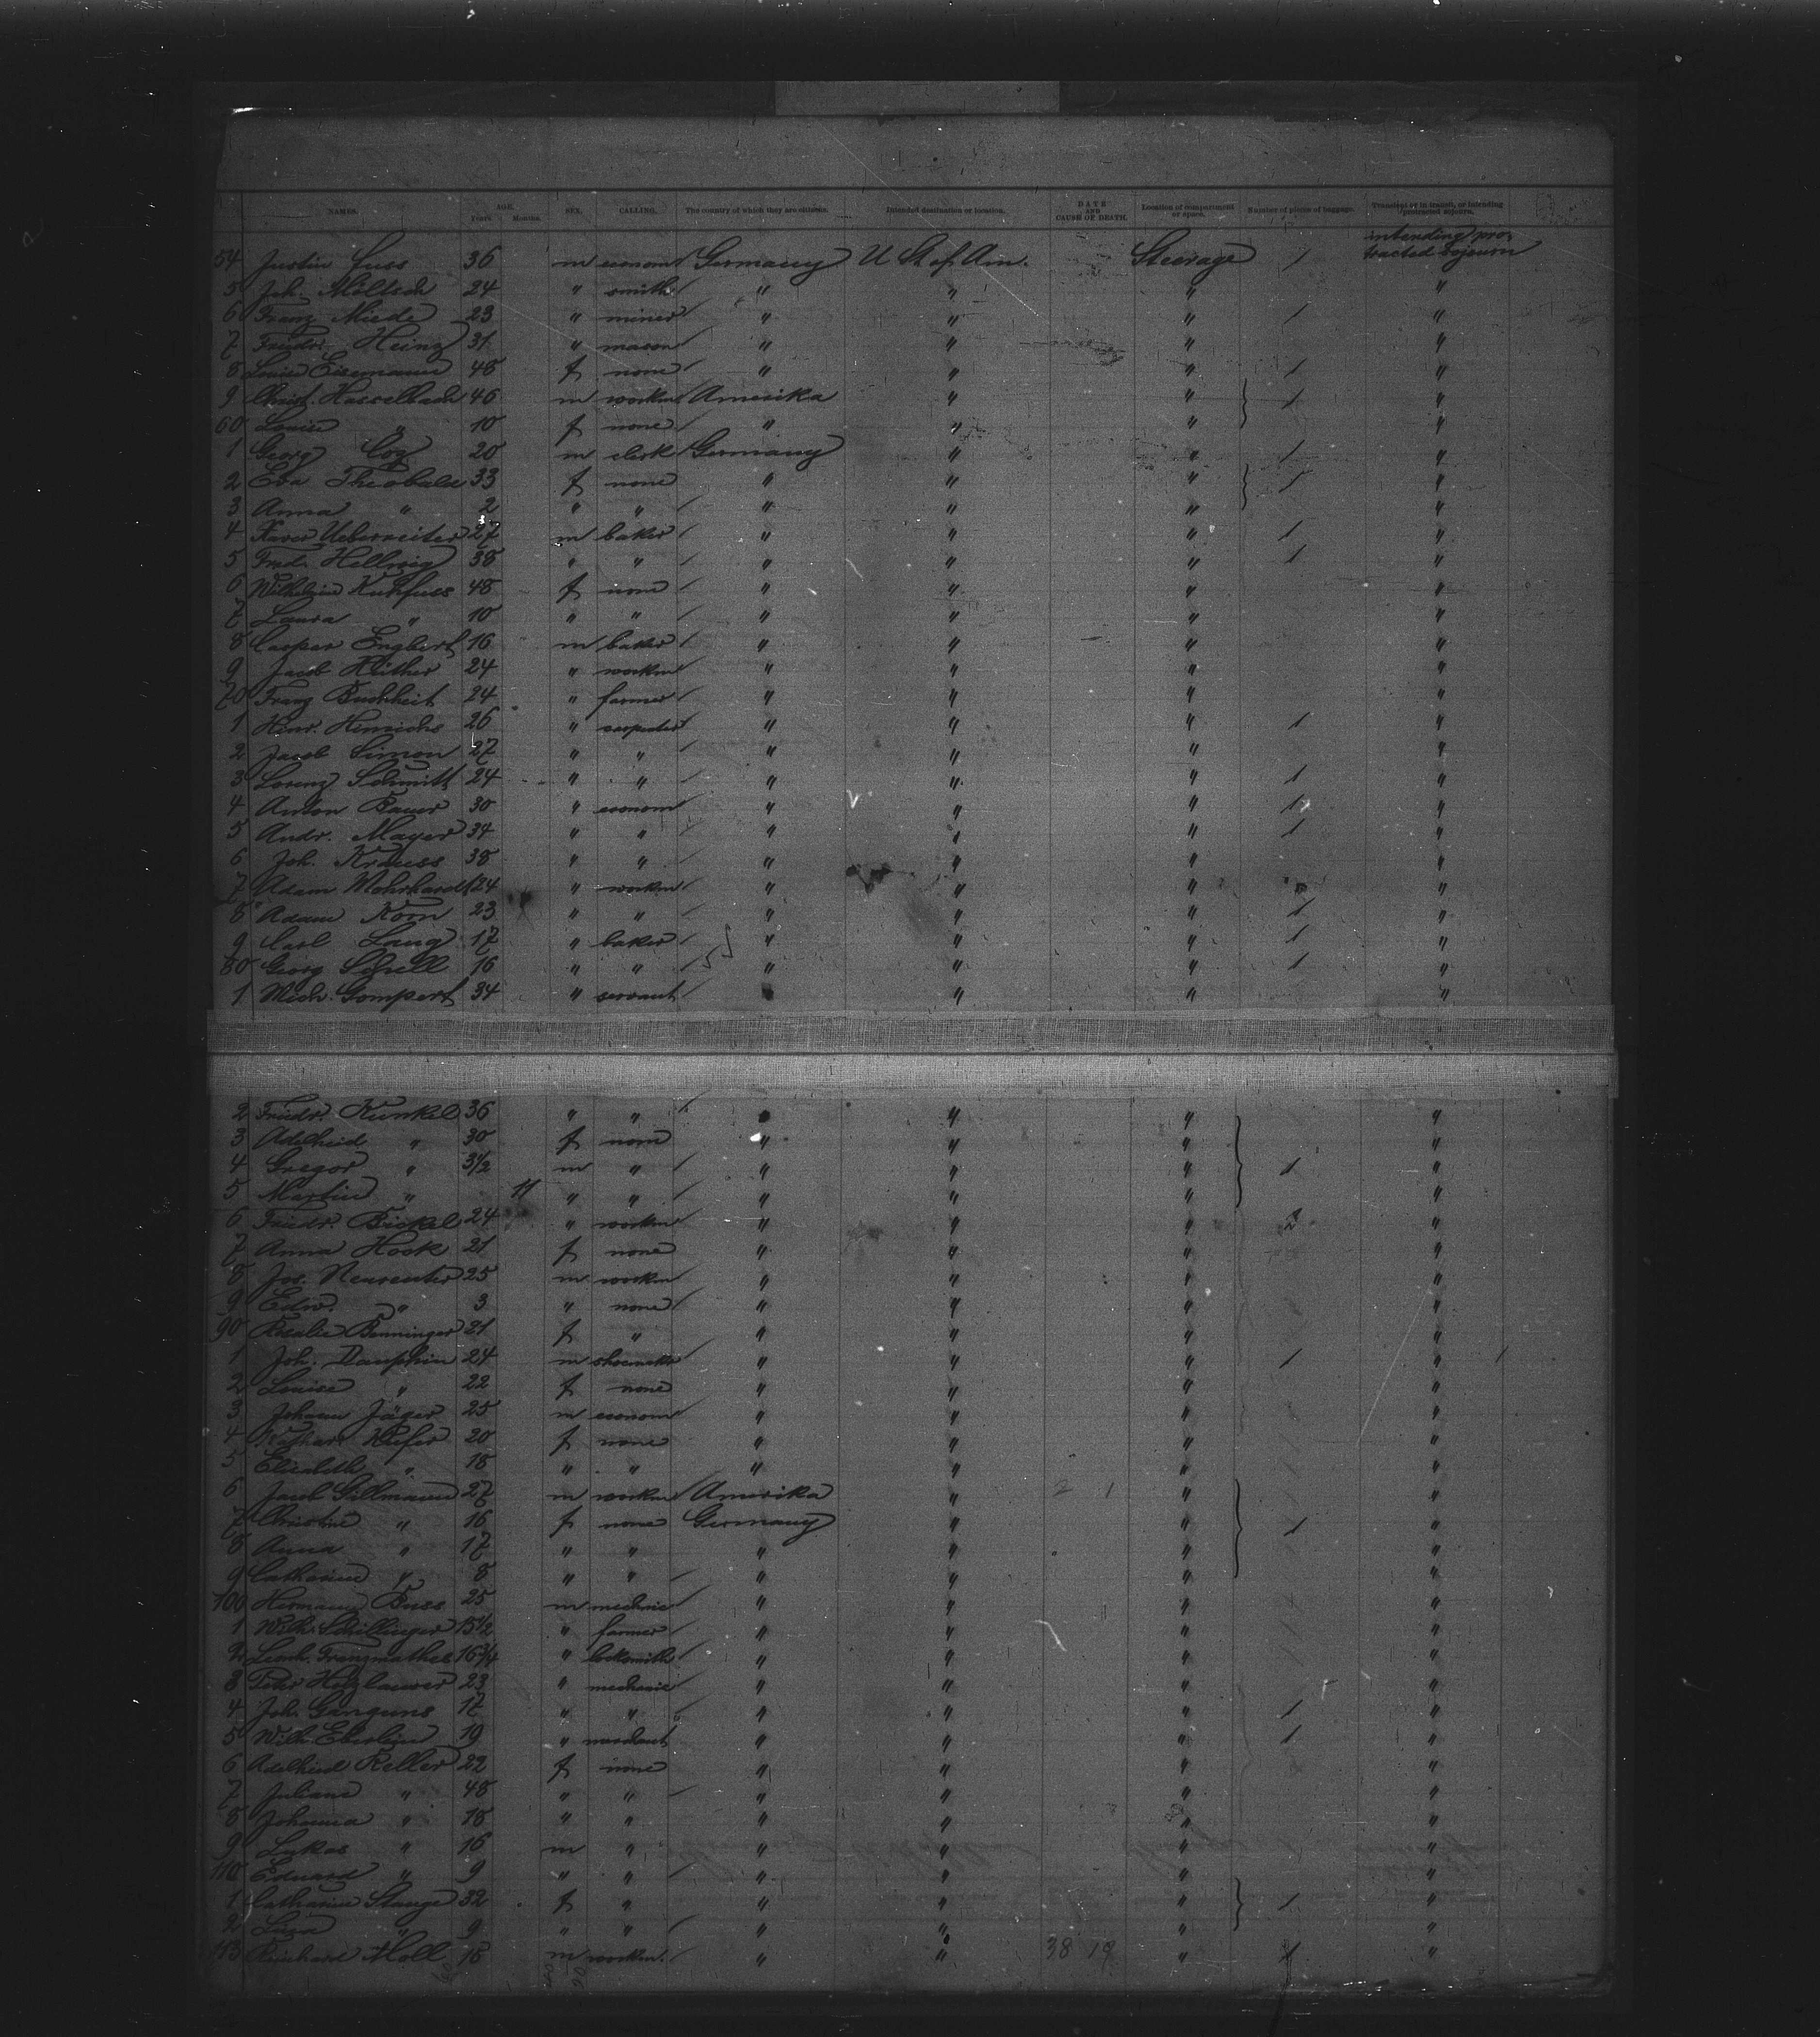 NAMES. AGE. Years. Months. SEX. CALLING. The country of which they are citizens. Intended destination or location. DATE AND CAUSE OF DEATH. Location of compartment or space. Number of pieces of baggage. Transient or in transit, or intending protracted sojourn.
54 Justin Fuss 36 m econom Germany U St of Am. Steerage / intending protracted sojourn
5 Joh. Möltsch 24 " smith " " " "
6 Franz Miede 23 " miner " " " / "
7 Friedr. Heinz 31 " mason " " " "
8 Louise Eisemann 48 f none " " " / "
9 Christ. Hasselbach 46 m workm Amerika " " / "
60 Louise " 10 f none " " " "
1 Georg Coz 20 m clerk Germany " " / "
2 Eva Theobald 33 f none " " " / "
3 Anna " 2 " " " " " "
4 Xaver Ueberreiter 27 m baker " " " / "
5 Fried. Hellwig 38 " " " " " / "
6 Wilhelmine Kuhfuss 48 f none " " " "
7 Laura " 10 " " " " " "
8 Caspar Englert 16 m baker " " " "
9 Jacob Hüther 24 " workm " " " "
70 Franz Buchheit 24 " farmer " " " "
1 Heinr. Hinrichs 26 " carpenter " " " / "
2 Jacob Simon 27 " " " " " "
3 Lorenz Schmitt 24 " " " " " / "
4 Anton Bauer 30 " econom " " " / "
5 Andr. Mayer 34 " " " " " / "
6 Joh. Krauss 38 " " " " " "
7 Adam Mohrhardt 24 " workm " " " "
8 Adam Korn 23 " " " " " / "
9 Carl Lang 17 " baker " " " / "
80 Georg Schell 16 " " " " " / "
1 Mich. Gompert 34 " servant " " " "
2 Friedr. Kunkel 36 " " " " " "
3 Adelheid " 30 f none " " " "
4 Gregor " 3 1/2 m " " " " / "
5 Martin " 11 " " " " " "
6 Friedr. Bickel 24 " workm " " " "
7 Anna Hook 21 f none " " " "
8 Jos. Neureuter 25 m workm " " " "
9 Edw. " 3 " none " " " "
90 Rosalie Benninger 21 f " " " " "
1 Joh. Dauphin 24 m shoemaker " " " / "
2 Louise " 22 f none " " " "
3 Johann Jäger 25 m econom " " " "
4 Kathar. Kiefer 20 f none " " " "
5 Elisabeth " 18 " " " " " "
6 Jacob Gillmann 27 m workm Amerika " 2 1 " "
7 Christine " 16 f none Germany " " / "
8 Anna " 17 " " " " " "
9 Catharine " 8 " " " " " "
100 Hermann Buss 25 m mechnic " " " "
1 Wilh. Schillinger 15 1/2 " farmer " " " "
2 Leonh. Franzmathes 16 3/4 " locksmith " " " "
3 Peter Holzhauser 23 " mechanic " " " "
4 Joh. Ganguns 17 " " " " " / "
5 Wilh. Eberlein 19 " merchant " " " / "
6 Adelheid Keller 22 f none " " " "
7 Juliane " 48 " " " " " "
8 Johanna " 18 " " " " " "
9 Lukas " 16 m " " " " "
110 Eduard " 9 " " " " " "
1 Catharine Stange 32 f " " " " / "
2 Luzia " 9 " " " " " "
113 Reinhard Moll 18 m workm. " " 38 19 " / "